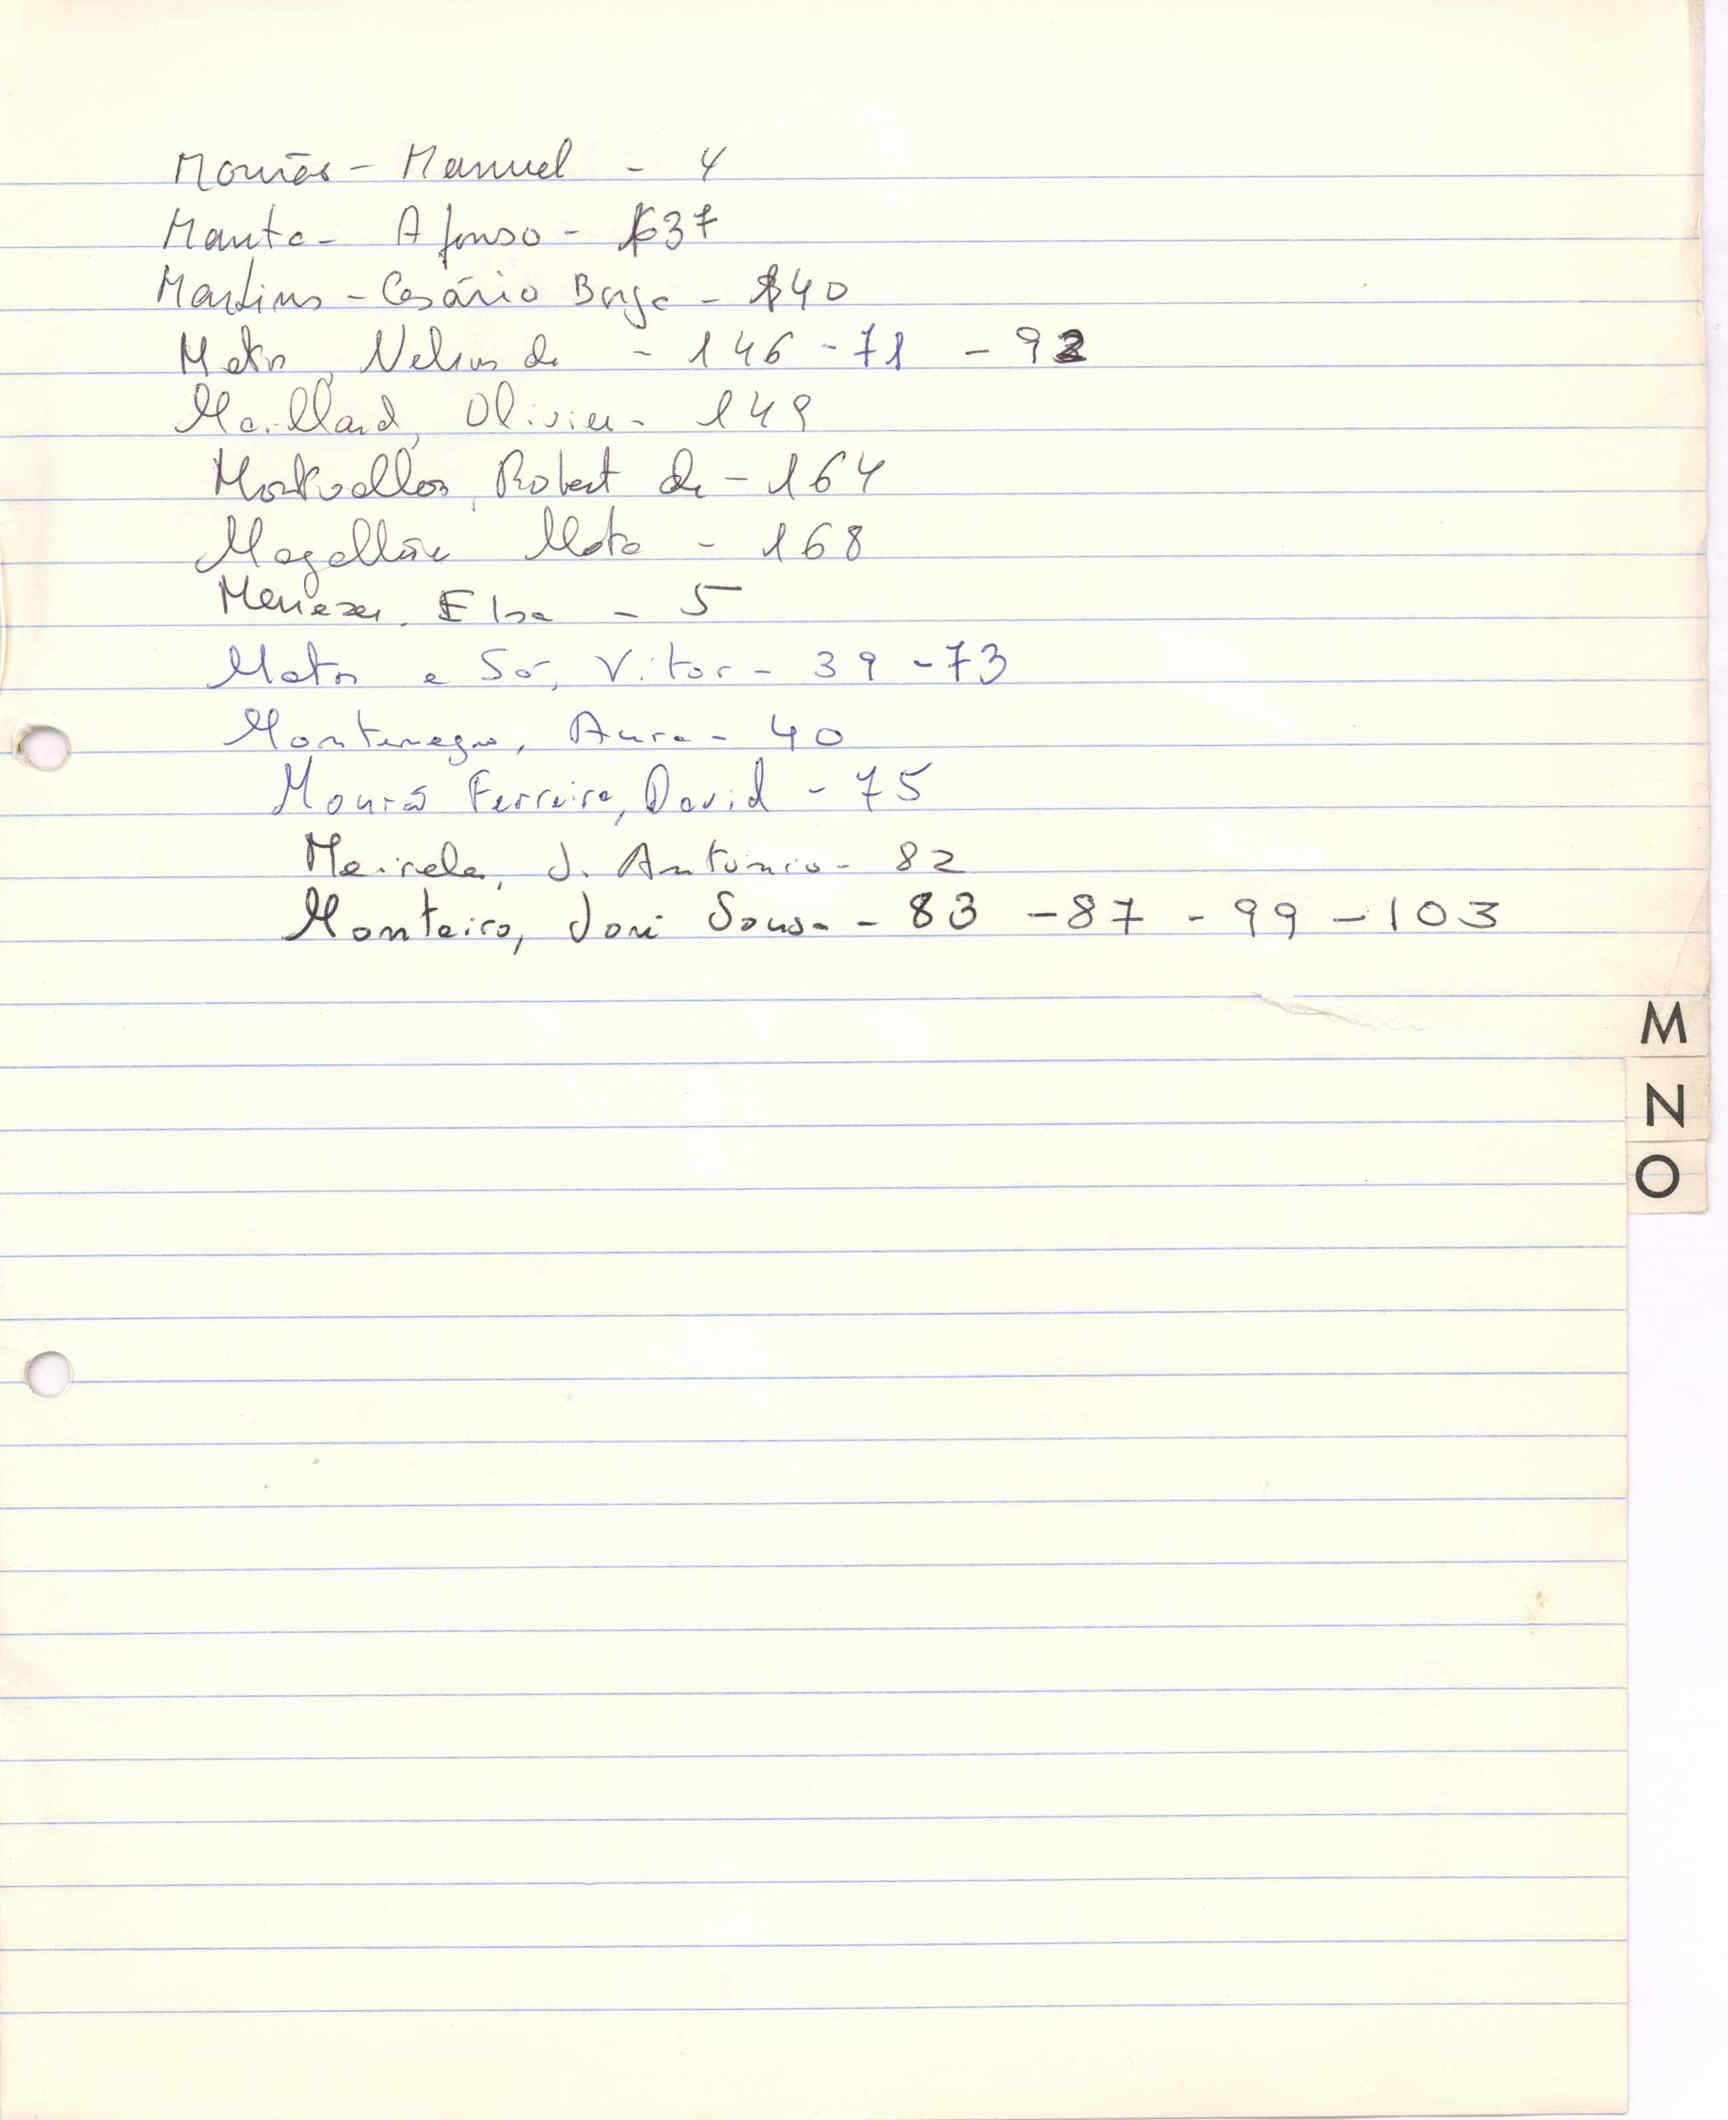 Mourão - Manuel - 4
Manta - Afonso - 37
Martins - Cesário Borga - 40
Matos, Nelson de - 146 - 71 - 92
Maillard, Olivier - 149
Robert de - 164
Magalhães Mota - 168
Menezes, Elsa - 5
Matos e Sá, Vitor - 39 - 73
Montenegro, Aura - 40
Mourão Ferreira, David - 75
Meireles, J. António - 82
Monteiro, José Sousa - 83 - 87 - 99 - 103
M
N
O